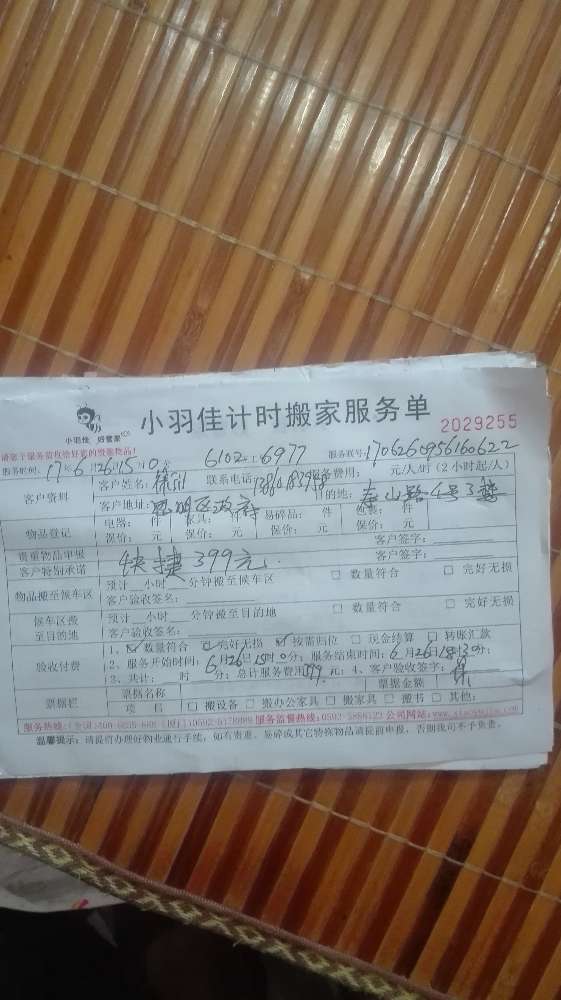 小羽佳 好管家
小羽佳计时搬家服务单
2029255
6102 6977
服务时间: 17年6月26日15时0分 服务联号: 1706260956160622
客户资料 客户姓名: 联系电话: 服务费用: 元/人/时 (2小时起/人)
客户地址: 思明区政府 目的地: 泰山路4号3楼
物品登记 电器: 件 家具: 件 易碎品: 件 包装: 件
保价: 元 保价: 元 保价: 元 保价: 元
贵重物品申报 客户签字:
客户特别承诺 快捷 399元. 客户签字:
物品搬至候车区 预计 小时 分钟搬至候车区 □ 数量符合 □ 完好无损
客户验收签名:
候车区搬至目的地 预计 小时 分钟搬至目的地 □ 数量符合 □ 完好无损
客户验收签名:
验收付费 1、☑ 数量符合 ☑ 完好无损 ☑ 按需归位 □ 现金结算 □ 转账汇款
2、服务开始时间: 6月26日15时0分; 服务结束时间: 6月26日18时30分;
3、共计: 时 分; 总计服务费用 399 元; 4、客户验收签字:
票据栏 票据名称 票据金额
项 目 □ 搬设备 □ 搬办公家具 □ 搬家具 □ 搬书 □ 其他:
服务监督热线:0592-5888123 公司网站:
温馨提示: 请提前办理好物业通行手续, 如有贵重、易碎或其它特殊物品请提前申报, 否则我司不予负责。